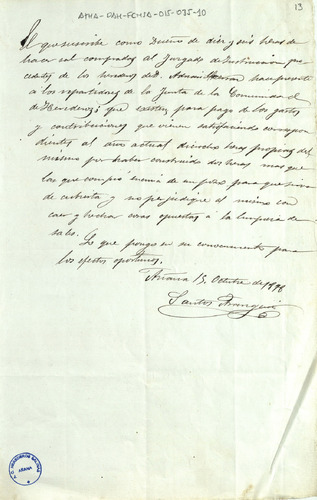 ATHA-DAH-FCHSA-015-035-10
13
El que suscribe como Dueño de diez y seis heras de
hacer sal compradas al Juzgado de Instruccion pro
cedentes de los herederos de D. Adrian hace presente
á los repartidores de la Junta de la Comunidad
de Herederos; que existen para pago de los gastos
y contribuciones que vienen satisfaciendo correspon
dientes al año actual dieciocho heras propias del
mismo por haber construido dos heras mas que
las que compró encima de un pozo para que sirva
de cubierta y no perjudique al mismo con
caer y hechar cosas opuestas á la limpieza de
sales.
Lo que pongo en su conocimiento para
los efectos oportunos.
Añana 15 Octubre de 1898
Santos Aranguiz
AÑANA